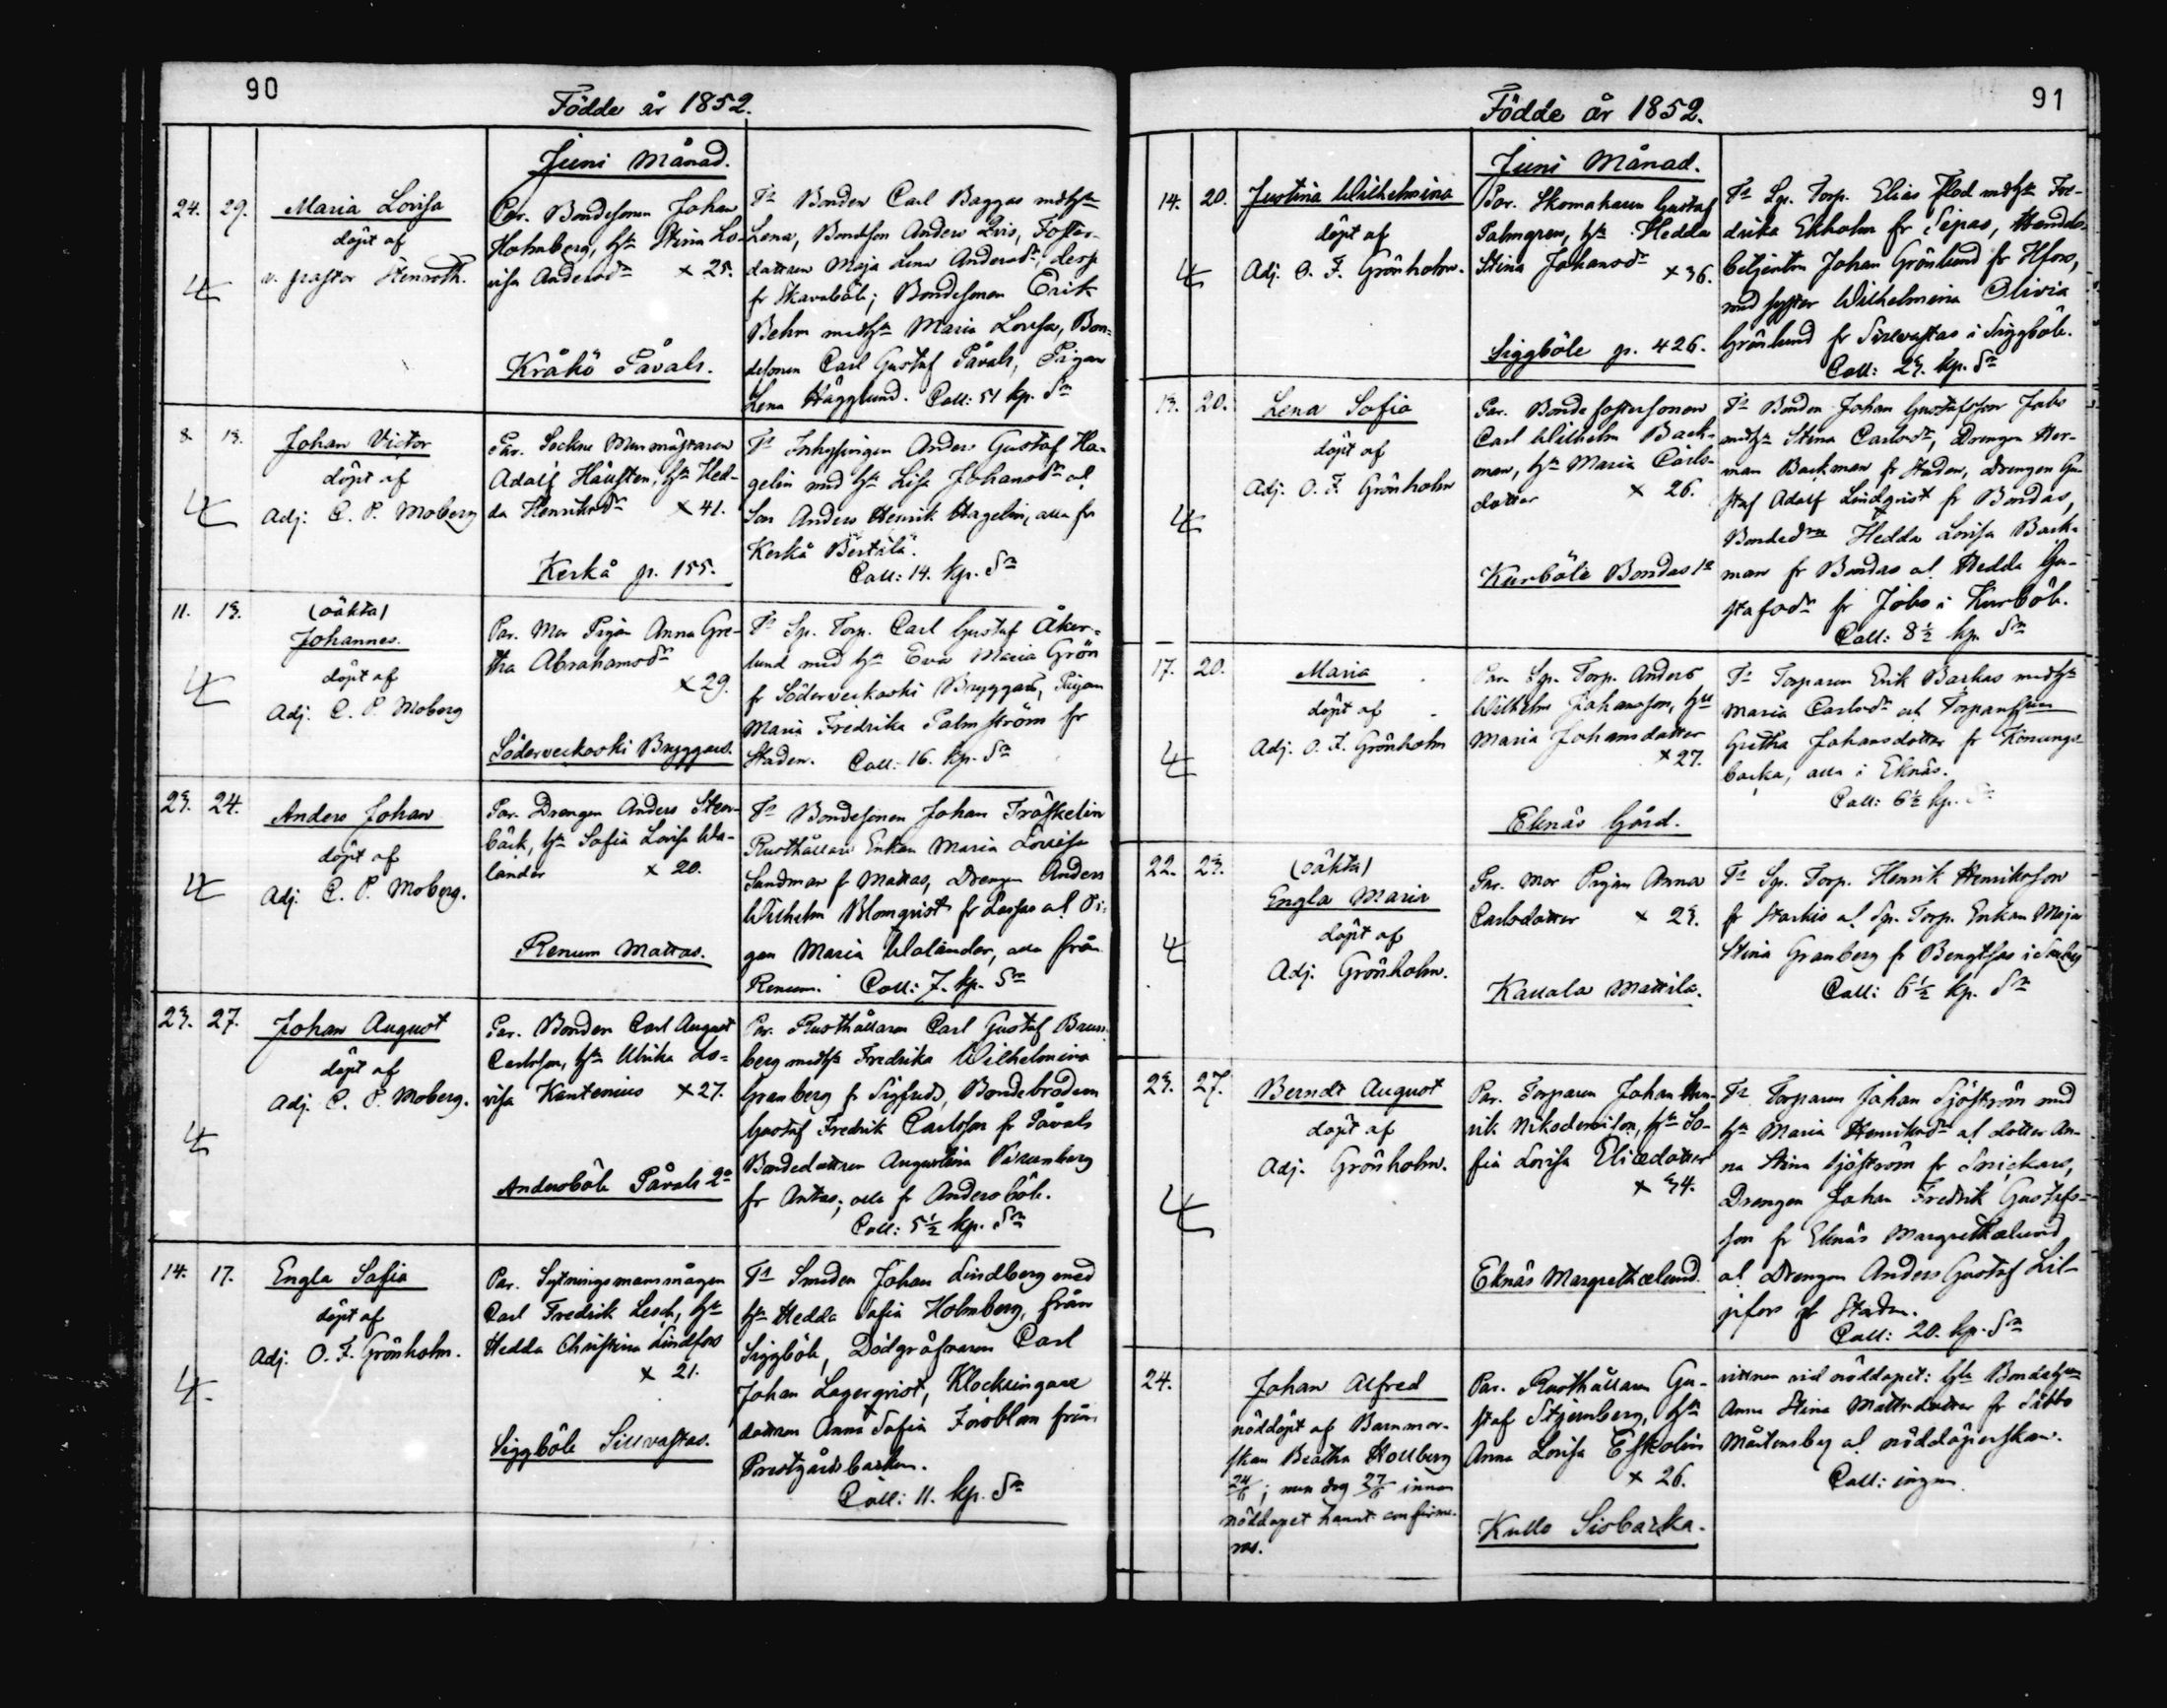 90
Födde år 1852.
Juni Månad.
24. 29. Maria Lovisa
döpt af
v. pastor Stenroth.
Par. Bondesonen Johan
Holmberg, hn Stina Lo-
visa Andersdr x 25.
Kråkö Påvals.
Fs Bonden Carl Baggas medhn
Lena, Bondeson Anders
dottren Maja Lena Andersdr,
fr Skavaböle; Bondesonen Erik
Behm medhn Maria Lovisa, Bon-
desonen Carl Gustaf Påvals, Pigan
Lena Hägglund. Coll: 51 kp. Sr
8. 13. Johan Victor
döpt af
Adj. C. P. Moberg
Par. Sockne Murmästaren
Adolf Häusten, hn Hed-
da Henriksdr x 41.
Kerkå p. 155.
Fs Inhysingen Anders Gustaf Ha-
gelin med hn Lisa Johansdr o
Son Anders Henrik Hagelin, alla fr
Kerkå Bertilä.
Coll: 14. kp. Sr
11. 13. (oäkta)
Johannes.
döpt af
Adj. C. P. Moberg
Par. Mor Pigan Anna Gre-
tha Abrahamsdr
x 29.
Söderveckoski Bryggars.
Fs Sp. Torp. Carl Gustaf Åker-
lund med hn Eva Maria Grön
fr Söderveckoski Bryggars, Pigan
Maria Fredrika Palmström fr
Staden. Coll: 16. kp. Sr
23. 24. Anders Johan
döpt af
Adj. C. P. Moberg.
Par. Drengen Anders Sten-
bäck, hn Sofia Lovisa Wa-
länder x 20.
Renum Mattas.
Fs Bondesonen Johan Träskelin
Rusthållare Enkan Maria Lovisa
Sandman fr Mattas, Drengen Anders
Wilhelm Blomqvist fr Lassas o Pi-
gan Maria Waländer, alla från
Renum. Coll: 7. kp. Sr
23. 27. Johan August
döpt af
Adj. C. P. Moberg.
Par. Bonden Carl August
Carlsson, hn Ulrika Lo-
visa Kantenius x 27.
Andersböle Påvals 2a
Par. Rusthållaren Carl Gustaf Brun-
berg medhn Fredrika Wilhelmina
Granberg fr Sigfreds, Bondebrodren
Gustaf Fredrik Carlsson fr Påvals
Bondedottren Augustina
fr Antas, alla fr Andersböle.
Coll: 5½ kp. Sr
14. 17. Engla Sofia
döpt af
Adj. O. F. Grönholm.
Par. Sytningsmansmågen
Carl Fredrik Lesch, hn
Hedda Christina Lindfors
x 21.
Siggböle Sillvastas.
Fs Smeden Johan Lindberg med
hn Hedda Sofia Holmberg, från
Siggböle, Dödgräfvaren Carl
Johan Lagerqvist, Klockringare
dottren Anna Sofia Forsblom från
Prestgårdsbacken.
Coll: 11. kp. Sr
91
Födde år 1852.
Juni Månad.
14. 20. Justina Wilhelmina
döpt af
Adj. O. F. Grönholm.
Par. Skomakaren Gustaf
Palmgren, hn Hedda
Stina Johansdr x 36.
Siggböle p. 426.
Fs Sp. Torp. Elias Flod medhn Fre-
drika Ekholm fr Sepas, Handels-
betjenten Johan Grönlund fr Hfors,
med syster Wilhelmina Olivia
Grönlund fr Sillvastas i Siggböle.
Coll: 23. kp. Sr
13. 20. Lena Sofia
döpt af
Adj. O. F. Grönholm
Par. Bonde fostersonen
Carl Wilhelm Back-
man, hn Maria Carls-
dotter x 26.
Kurböle Bondas 1a
Fs Bonden Johan Gustafsson Jobs
medhn Stina Carlsdr, Drengen Her-
man Backman fr Staden, Drengen Gu-
staf Adolf Lindqvist fr Bondas,
Bondedrn Hedda Lovisa Back-
man fr Bondas o Hedda Gu-
stafsdr fr Jobs i Kurböle.
Coll: 8½ kp. Sr
17. 20. Maria
döpt af
Adj. O. F. Grönholm
Par. Sp. Torp. Anders
Wilhelm Johansson, hn
Maria Johansdotter
x 27.
Eknäs Gård.
Fs Torparen Erik Backas medhn
Maria Carlsdr och
Gretha Johansdotter fr Konungs-
backa, alla i Eknäs.
Coll: 6½ kp. Sr
22. 23. (oäkta)
Engla Maria
döpt af
Adj. Grönholm.
Par. Mor Pigan Anna
Carlsdotter x 23.
Kallola Mattila.
Fs Sp. Torp. Henrik Henriksson
fr Starkis o Sp. Torp. Enkan Maja
Stina Granberg fr Bengtsas i
Coll: 6½ kp. Sr
23. 27. Berndt August
döpt af
Adj. Grönholm.
Par. Torparen Johan Hen-
rik Nikodemison, hn So-
fia Lovisa Eliedotter
x 34.
Eknäs Margrethælund.
Fs Torparen Johan Sjöström med
hn Maria Henriksdr o dotter An-
na Stina Sjöström fr Snickars,
Drengen Johan Fredrik Gustafs-
son fr Eknäs Margrethælund
o Drengen Anders Gustaf Lil-
jefors fr Staden.
Coll: 20. kp. Sr
24. Johan Alfred
nöddöpt af Barnmor-
skan Beatha Hollberg
24/6; men dog 27/6 innan
nöddopet hannt confirme-
ras.
Par. Rusthållaren Gu-
staf Stjernberg, hn
Anna Lovisa Eskolin
x 26.
Kullo Sisbacka.
vittnen vid nöddopet: Gla Bondehn
Anna Stina Mattsdotter fr Sibbo
Mårtensby o nöddöperskan.
Coll: ingen.